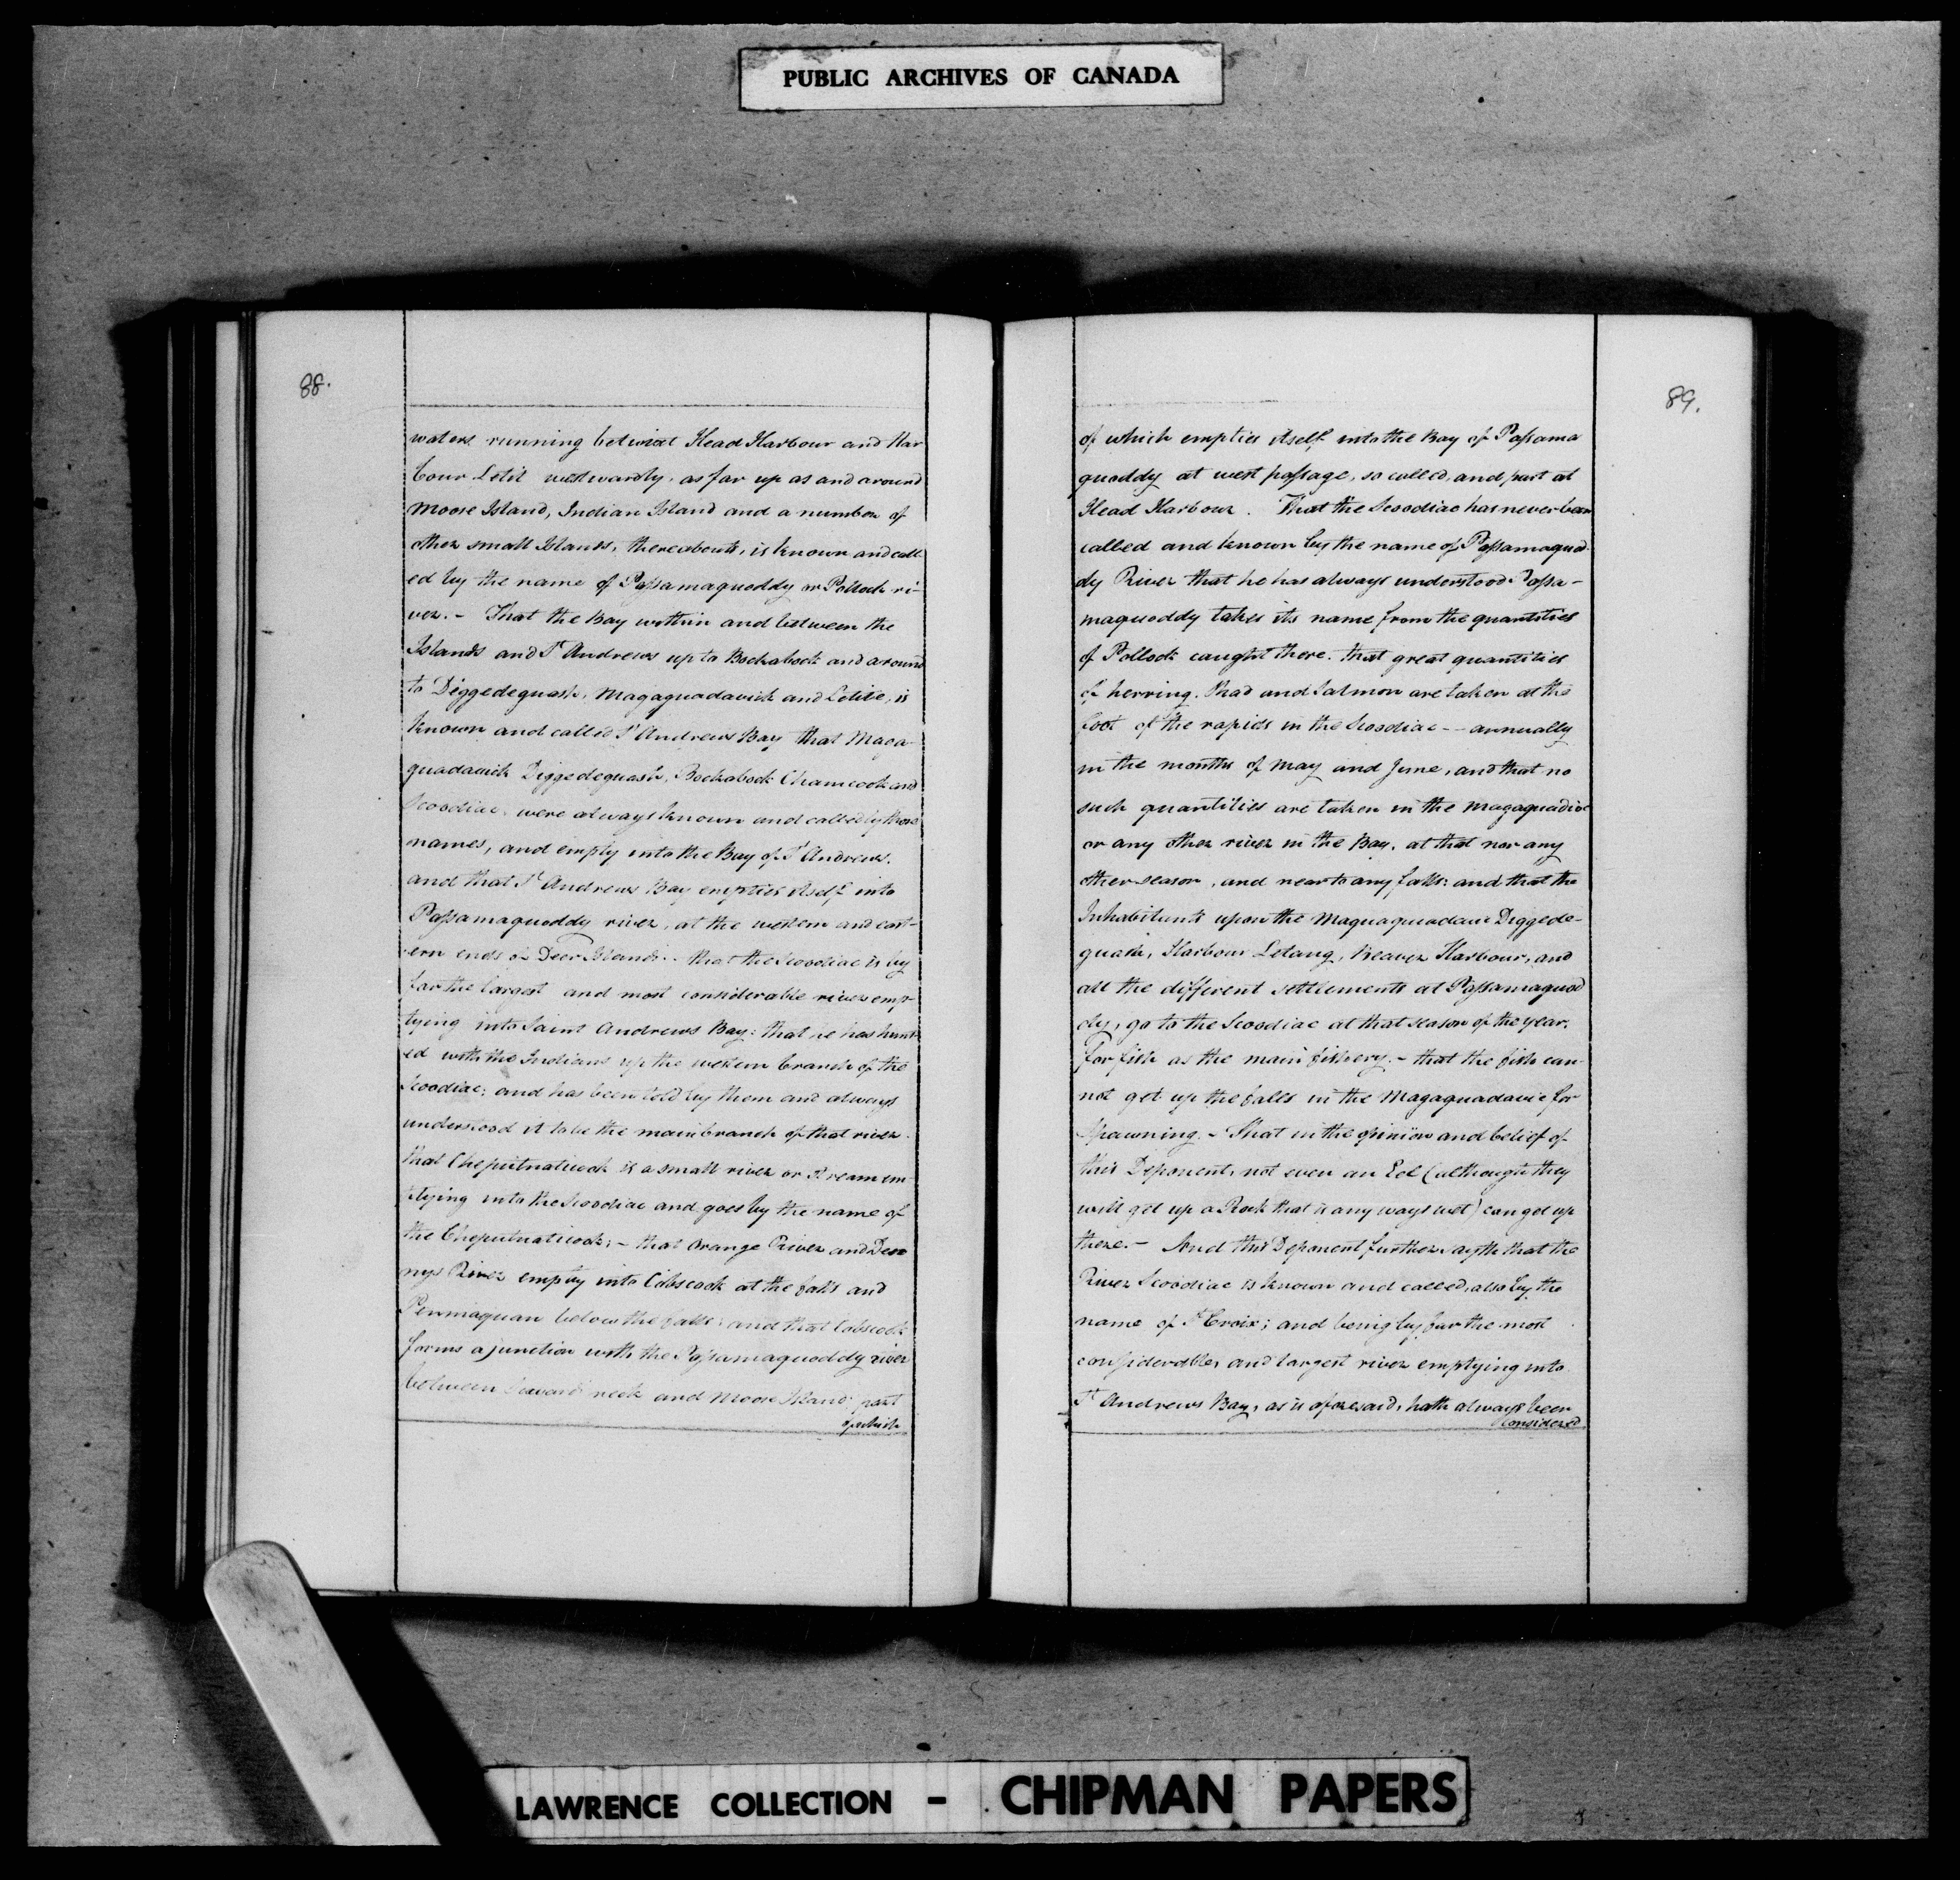 PUBLIC ARCHIVES OF CANADA
88.
waters running betwixt Head Harbour and Har
bour Letit westwardly, as far up as and around
Moose Island, Indian Island and a number of
other small Islands, thereabouts, is known and call
ed by the name of Passamaquoddy or Pollock ri-
ver. - That the Bay within and between the
Islands and St Andrews up to Bockabock and around
to Diggedeguash, Magaguadavick and Letite, is
known and called St Andrews Bay that Maga-
guadavick Diggedeguash, Bockabock Chamcook and
Scoodiac, were always known and called by those
names, and empty into the Bay of St Andrews.
and that St Andrews Bay empties itself into
Passamaquoddy river, at the western and east-
ern ends of Deer Island. - that the Scoodiac is by
far the largest and most considerable river emp-
tying into Saint Andrews Bay: that he has hunt-
ed with the Indians up the western branch of the
Scoodiac; and has been told by them and always
understood it to be the main branch of that river.
that Cheputnaticook is a small river or Stream em-
ptying into the Scoodiac and goes by the name of
the Cheputnaticook; - that Orange River and Den
nys River empty into Cobscook at the falls and
Penmaquan below the falls; and that Cobscook
forms a junction with the Passamaquoddy river
between Seward neck and Moose Island; part
of which
89.
of which empties itself into the Bay of Passama
quoddy at west passage, so called, and part at
Head Harbour. That the Scoodiac has never been
called and known by the name of Passamaquod-
dy River that he has always understood Passa-
maquoddy takes its name from the quantities
of Pollock caught there. that great quantities
of herring, Shad and Salmon are taken at the
foot of the rapids in the Scoodiac -- annually
in the months of May and June, and that no
such quantities are taken in the Magaguadic
or any other river in the Bay, at that nor any
other season, and near to any falls: and that the
Inhabitants upon the Maquaquadavic Diggede-
guash, Harbour Letang, Beaver Harbour, and
all the different settlements at Passamaquod
dy, go to the Scoodiac at that season of the year.
for fish as the main fishery. - that the fish can-
not get up the falls in the Magaguadavic for
Spawning. - That in the opinion and belief of
this Deponent, not even an Eel (although they
will get up a Rock that is any ways wet) can get up
there. - And this Deponent further sayth that the
River Scoodiac is known and called, also by the
name of St Croix; and being by far the most
considerable, and largest river emptying into
St Andrews Bay, as is aforesaid, hath always been
considered
LAWRENCE COLLECTION - CHIPMAN PAPERS